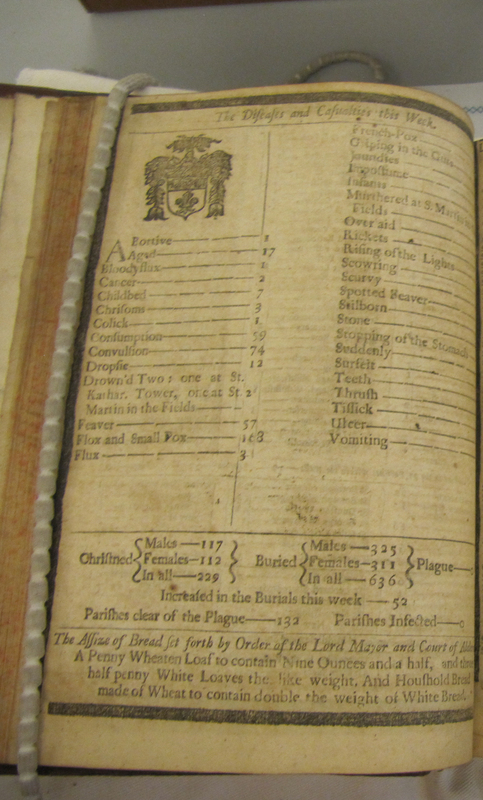 The Diseases and Casualties this Week.
ABortive 1
Aged 17
Bloody flux 1
Cancer 2
Childbed 7
Chrisoms 3
Colick 1
Consumption 59
Convulsion 74
Dropsie 12
Drown'd Two: one at St.
Kathar. Tower, one at St. 2
Martin in the Fields
Feaver 57
Flox and Small Pox
Flux 3
French-Pox
Griping in the Guts
Jaundies
Imposthume
Infants
Murthered at S. Martin
Fields
Overlaid
Rickets
Rising of the Lights
Scowring
Scurvy
Spotted Feaver
Stilborn
Stone
Stopping of the Stomach
Suddenly
Surfeit
Teeth
Thrush
Tissick
Ulcer
Vomiting
Christned Males—117 Females—112 In all—229 Buried Males—325 Females—311 In all—636 Plague
Increased in the Burials this week—52
Parishes clear of the Plague—132 Parishes Infected—0
The Assize of Bread set forth by Order of the Lord Mayor and Court of
A Penny Wheaten Loaf to contain Nine Ounces and a half, and three
half penny White Loaves the like weight. And Houshold Bread
made of Wheat to contain double the weight of White Bread.